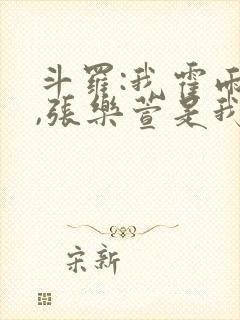 斗羅:我霍雨
,張樂萱是我
宋新